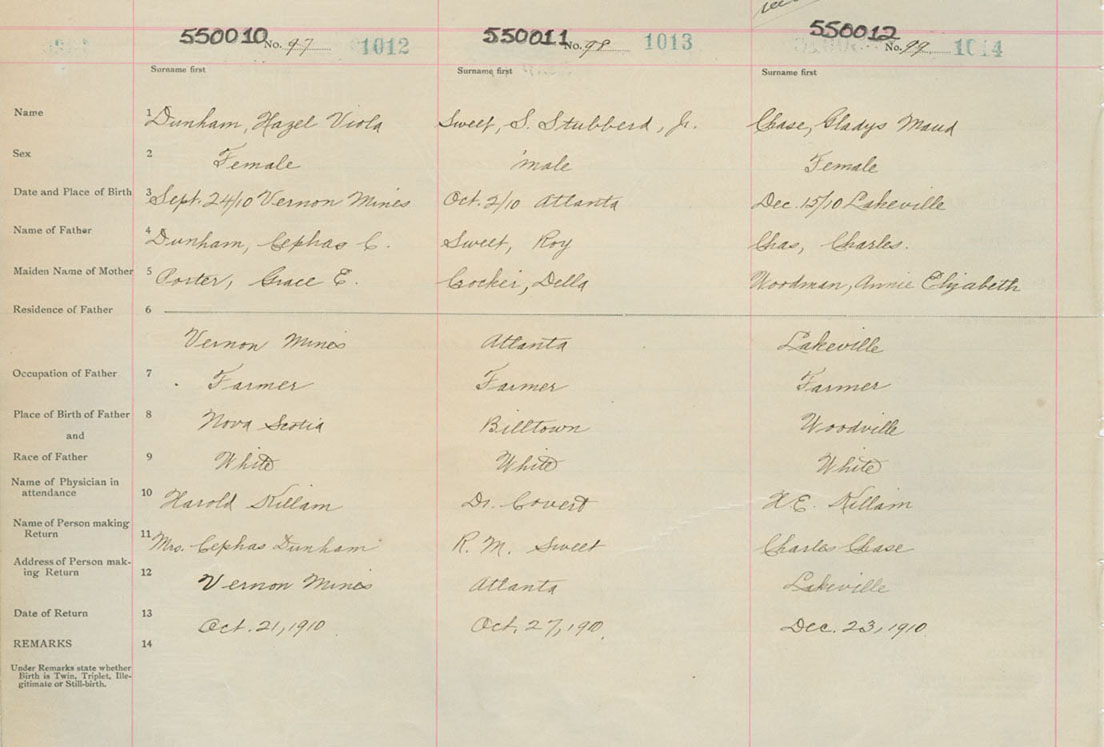 550010 No. 97 1012 550011 No. 98 1013 550012 No. 99 1014
Surname first Surname first Surname first
Name 1 Dunham, Hazel Viola Sweet, S. Stubberd, Jr. Chase, Gladys Maud
Sex 2 Female male Female
Date and Place of Birth 3 Sept. 24/10 Vernon Mines Oct. 2/10 Atlanta Dec. 15/10 Lakeville
Name of Father 4 Dunham, Cephas C. Sweet, Roy Chas, Charles.
Maiden Name of Mother 5 Porter, Grace E. Crocker, Della Woodman, Annie Elizabeth
Residence of Father 6
Vernon Mines Atlanta Lakeville
Occupation of Father 7 Farmer Farmer Farmer
Place of Birth of Father 8 Nova Scotia Billtown Woodville
and
Race of Father 9 White White White
Name of Physician in
attendance 10 Harold Killam Dr. Covert H.E. Killam
Name of Person making
Return 11 Mrs. Cephas Dunham R. M. Sweet Charles Chase
Address of Person mak-
ing Return 12 Vernon Mines Atlanta Lakeville
Date of Return 13 Oct. 21, 1910 Oct. 27, 1910 Dec. 23, 1910
REMARKS 14
Under Remarks state whether
Birth is Twin, Triplet, Ille-
gitimate or Still-birth.